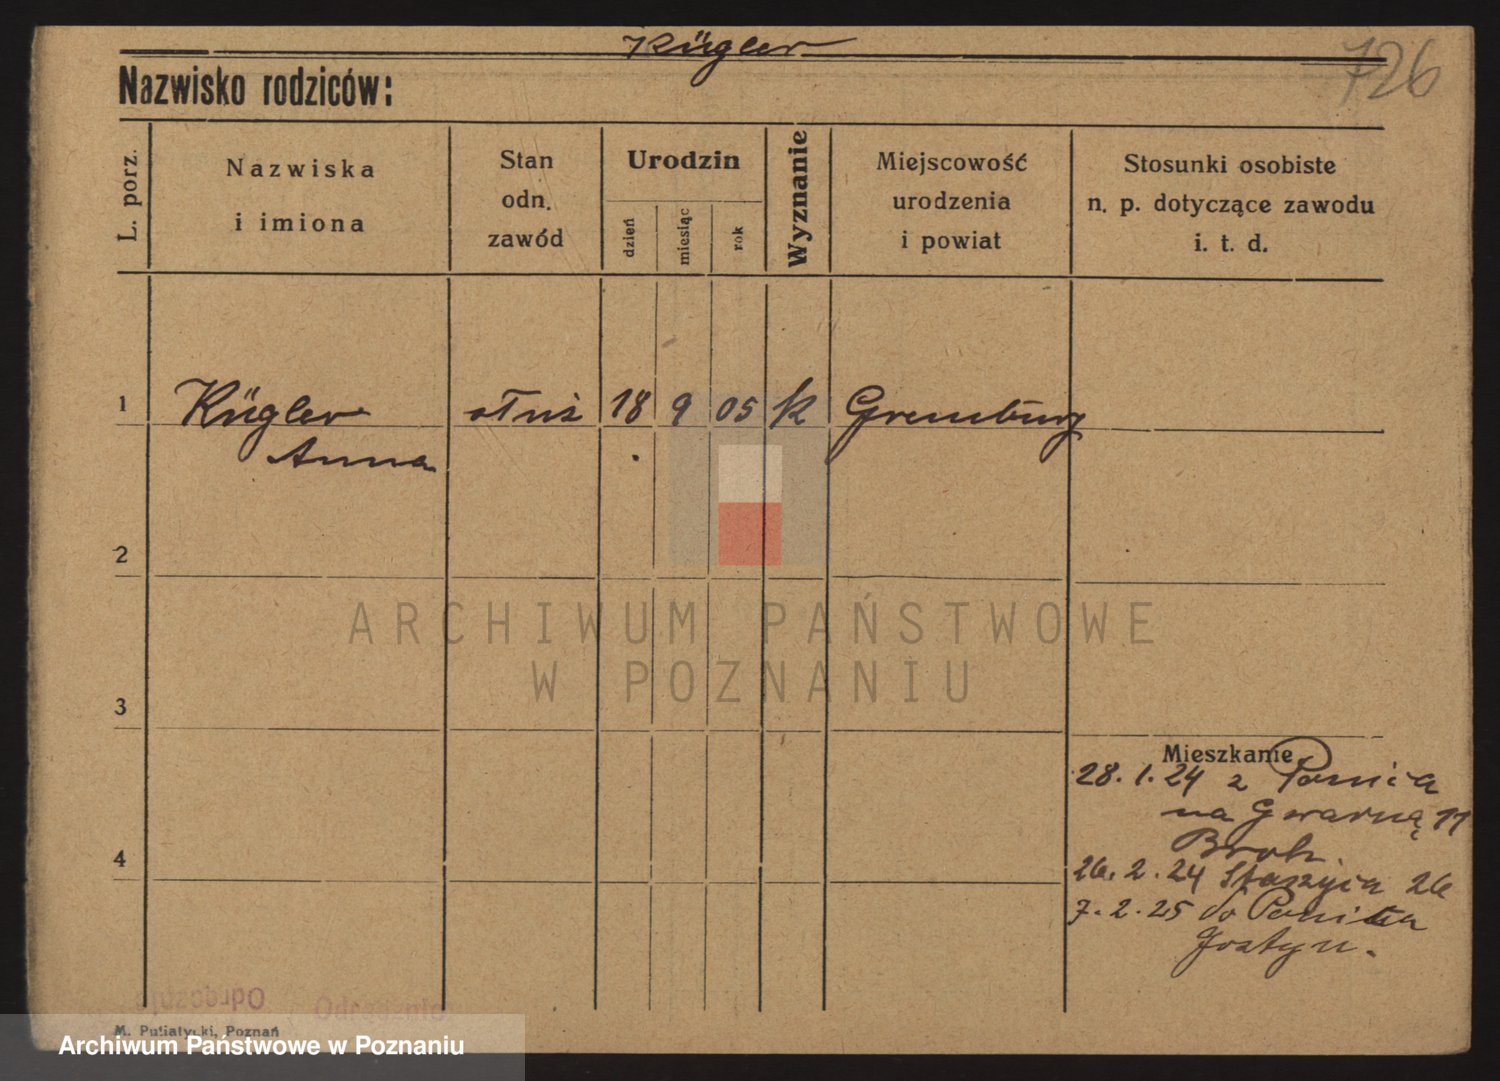 Kügler
726
Nazwisko rodziców:
L. porz.
Nazwiska
i imiona
Stan
odn.
zawód
Urodzin
dzień
miesiąc
rok
Wyznanie
Miejscowość
urodzenia
i powiat
Stosunki osobiste
n. p. dotyczące zawodu
i. t. d.
1 Kügler służ 18 9 05 k
Anna
2
ARCHIWUM PAŃSTWOWE
W POZNANIU
3
Mieszkanie
28.1.24 z
na Gwarną 11
4
26.2.24 Staszyca 26
7.2.25 do
Gostyn.
Odręcznie
M. Putiatycki, Poznań
Archiwum Państwowe w Poznaniu